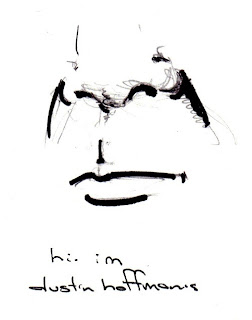 hi. im
dustin hoffman's